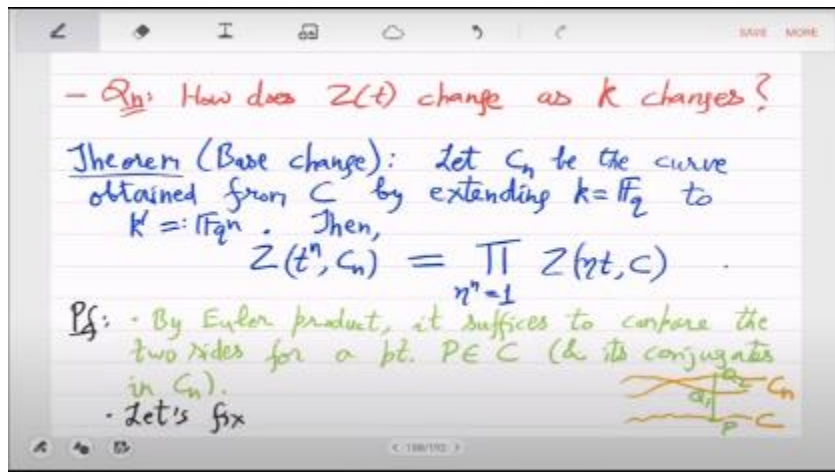 SAVE MORE
- Qn: How does Z(t) change as k changes?
Theorem (Base change): Let Cₙ be the curve
obtained from C by extending k=𝔽_q to
k' =: 𝔽_qⁿ . Then,
Z(tⁿ, Cₙ) = ∏_{ηⁿ=1} Z(ηt, C) .
Pf: · By Euler product, it suffices to compare the
two sides for a pt. P∈C (& its conjugates
in Cₙ).
· Let's fix
Q₂ Cₙ
Q₁
C
P